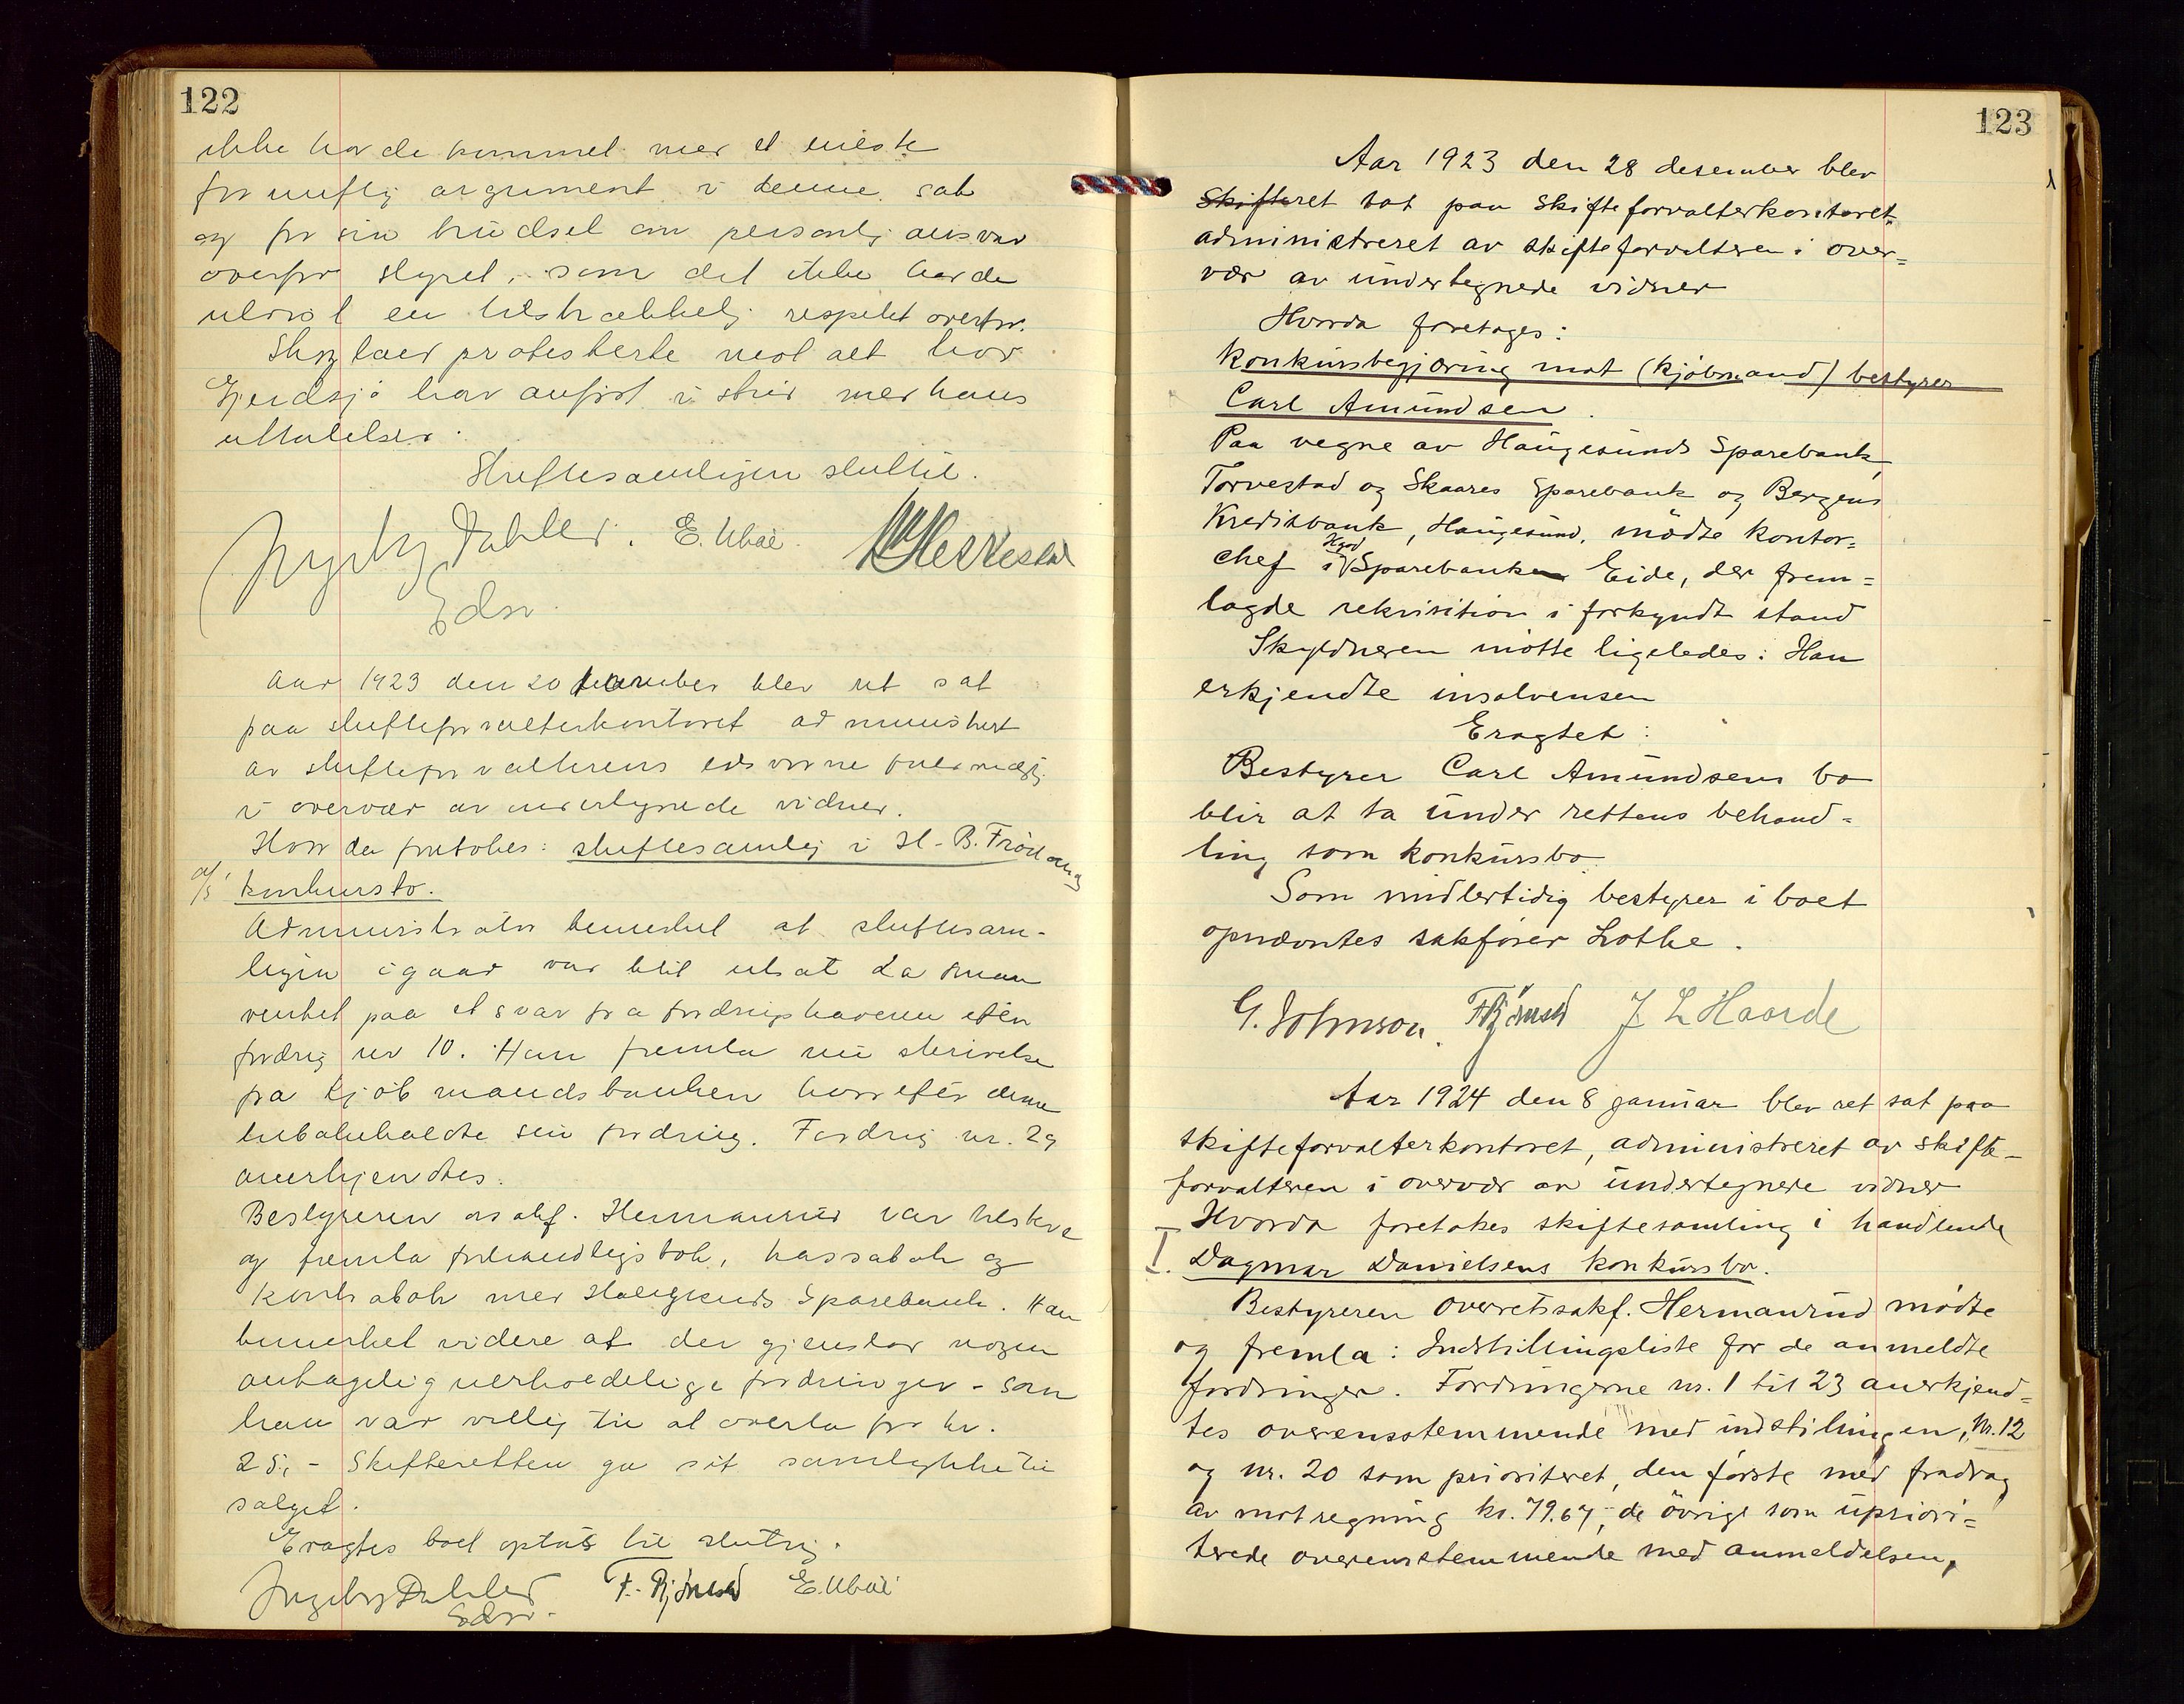 122
ikke havde kommet med et eneste
fornuftig argument i denne sak
og for sin trudsel om personlig ansvar
overfor styret, som det ikke havde
utvist en tilstrækkelig respekt overfor.
protesterte mot alt hvad
Gjerdsjø har anført i strid med hans
uttalelser.
Skiftesamlingen sluttet.
Ingeborg Dahler. E. Ubøe
Edsv.
Aar 1923 den 20 desember blev ret sat
paa skifteforvalterkontoret administrert
av skifteforvalterens edsvorne fuldmegtig
i overvær av undertegnede vidner.
Hvorda foretokes: skiftesamling i H. B. Frøiland
a/s konkursbo.
Administrator bemerket at skiftesam-
lingen igaar var blit utsat da man
ventet paa et svar fra fordringshaveren efter
fordring nr 10. Han fremla nu skrivelse
fra Kjøbmandsbanken hvorefter denne
tilbakeholdte sin fordring. Fordring nr. 29
anerkjendtes.
Bestyreren o.r.sakf. Hermanrud var tilstede
og fremla forhandlingsbok, kassabok og
kontrabok med Haugesunds Sparebank. Han
bemerket videre at der gjenstod nogen
antagelig uerholdelige fordringer - som
han var villig til at overta for kr.
25,- Skifteretten ga sit samtykke til
salget.
Eragtes boet optat til slutning.
Ingeborg Dahler F. Bjørnsen E. Ubøe
Edsv.
123
Aar 1923 den 28 desember blev
Skifteret sat paa Skifteforvalterkontoret
administreret av skifteforvalteren i over=
vær av undertegnede vidner
Hvorda foretages:
Konkursbegjæring mot (kjøbmand) bestyrer
Carl Amundsen.
Paa vegne av Haugesunds Sparebank,
Torvestad og Skaares Sparebank og Bergens
Kreditbank, Haugesund, mødte kontor=
chef i Hgsd Sparebank Eide, der frem=
lagde rekvisition i forkyndt stand
Skyldneren møtte ligeledes: Han
erkjendte insolvensen
Eragtet:
Bestyrer Carl Amundsens bo
blir at ta under rettens behand=
ling som konkursbo.
Som midlertidig bestyrer i boet
opnævntes sakfører Lothe.
G. Johnson. F. Bjørnsen J L Haarde
Aar 1924 den 8 januar blev ret sat paa
skifteforvalterkontoret, administreret av skifte-
forvalteren i overvær av undertegnede vidner
Hvorda foretokes skiftesamling i handlende
I. Dagmar Danielsens konkursbo.
Bestyreren overretssakf. Hermanrud mødte
og fremla: Indstillingsliste for de anmeldte
fordringer. Fordringerne nr. 1 til 23 anerkjend=
tes overensstemmende med indstillingen, Nr. 12
og nr. 20 som prioriteret, den første med fradrag
av motregning kr. 79.67, de øvrige som upriori=
terede overensstemmende med anmeldelsen,